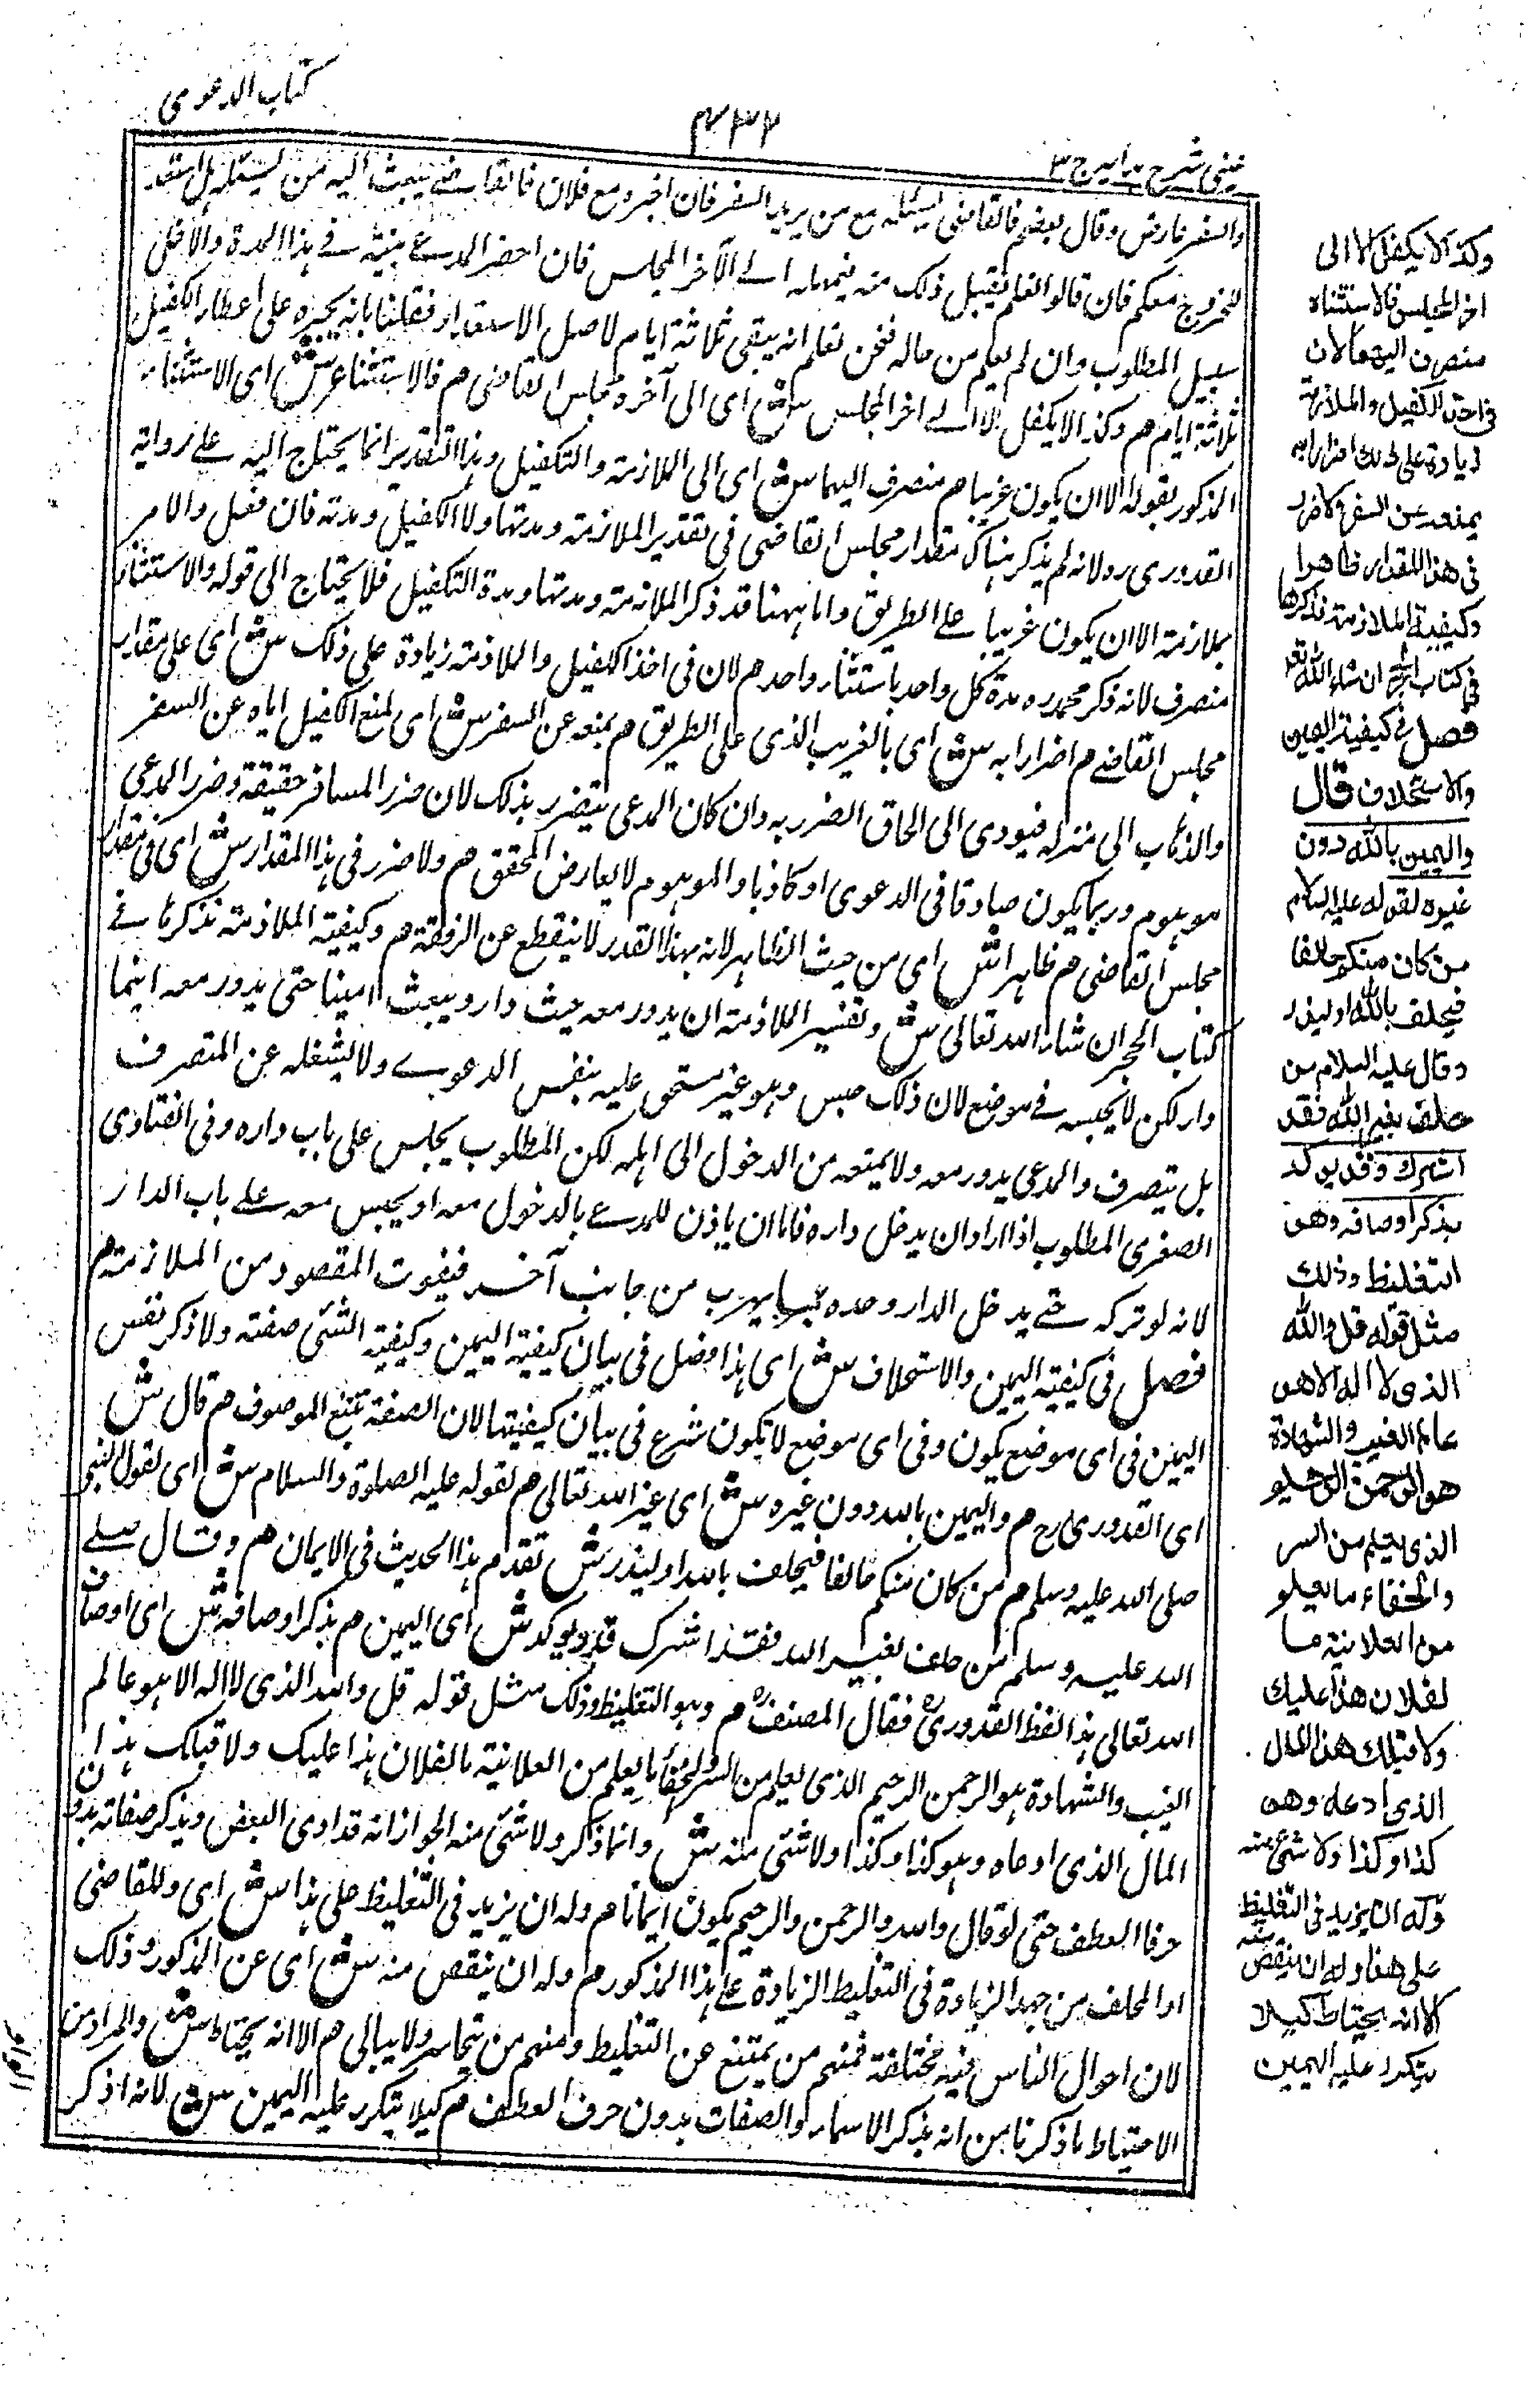 كتاب الدعوى
٤٣٢
عينى شرح هدايه ج ٣
والسفر عارض وقال بعضهم فالقاضى يسئله مع من يريد السفر فان اخبره مع فلان فالقاضے يبعث اليه من يسئله هل استعد
للخروج معكم فان قالوا نعلم تقبل ذلك منه فيمهله الے الآخر المجلس فان احضر المدعے بينة فے هذا المدة والا خلى
سبيل المطلوب وان لم يعلم من حاله فنحن نعلم انه يبقى ثلاثة ايام لاصل الاستعداد فقلنا بانه يجبره على اعطاء الكفيل
ثلاثة ايام هم وكذا لا يكفل الا الے اخر المجلس ش اى الى آخر مجلس القاضى هم فالاستثناء ش اى الاستثناء
المذكور بقوله الا ان يكون غريبا هم منصرف اليهما ش اى الى الملازمة والتكفيل وهذا التقدير انما يحتاج اليه علے رواية
القدورى ره لانه لم يذكر هناك مقدار مجلس القاضى فى تقدير الملازمة ومدتها ولا الكفيل ومدته فان فعل والا امر
بملازمته الا ان يكون غريبا علے الطريق واما ههنا قد ذكر الملازمة ومدتها ومدة التكفيل فلا يحتاج الى قوله والاستثناء
منصرف لانه ذكر محمد ره مدة كل واحد باستثناء واحد هم لان فى اخذ الكفيل والملازمة زيادة على ذلك ش اى على مقدار
مجلس القاضے هم اضرارا به ش اى بالغريب الذى على الطريق هم بمنعه عن السفر ش اى لمنع الكفيل اياه عن السفر
والذهاب الى منزله فيودى الى الحاق الضرر به وان كان المدعى يتضرر بذلك لان ضرر المسافر حقيقة وضرر المدعى
موهوم وربما يكون صادقا فى الدعوى او كاذبا والموهوم لا يعارض المحقق هم ولا ضرر فى هذا المقدار ش اى فى مقدار
مجلس القاضى هم ظاهرا ش اى من حيث الظاهر لانه بهذا القدر لا ينقطع عن الرفقة هم وكيفية الملازمة نذكرها فے
كتاب الحجر ان شاء الله تعالى ش وتفسير الملازمة ان يدور معه حيث دار ويبعث امينا حتى يدور معه اينما
دار لكن لا يحبسه فے موضع لان ذلك حبس وهو غير مستحق عليه بنفس الدعوے ولا يشغله عن التصرف
بل يتصرف والمدعى يدور معه ولا يمنعه من الدخول الى اهله لكن المطلوب يجلس على باب داره وفى الفتاوى
الصغرى المطلوب اذا اراد ان يدخل داره فاما ان ياذن للمدعے بالدخول معه او يحبس معه علے باب الدار
لانه لو تركه حتے يدخل الدار وحده ربما يهرب من جانب آخر فيفوت المقصود من الملازمة هم
فصل فى كيفية اليمين والاستحلاف ش اى هذا فصل فى بيان كيفية اليمين وكيفية الشئ صفته ولما ذكر نفس
اليمين فى اى موضع يكون وفى اى موضع لا يكون شرع فى بيان كيفيتها لان الصفة تتبع الموصوف هم قال ش
اى القدورى رح هم واليمين بالله دون غيره ش اى غير الله تعالى هم لقوله عليه الصلوة والسلام ش اى لقول النبى
صلى الله عليه وسلم هم من كان منكم حالفا فيحلف بالله او ليذر ش تقدم هذا الحديث فى الايمان هم وقال صلے
الله عليه وسلم من حلف بغير الله فقد اشرك قد ويوكد ش اى اليمين هم بذكر اوصافه ش اى اوصاف
الله تعالى هذا لفظ القدورى ره فقال المصنف ره هم وهو التغليظ وذلك مثل قوله قل والله الذى لا اله الا هو عالم
الغيب والشهادة هو الرحمن الرحيم الذى يعلم من السر والخفاء ما يعلم من العلانية ما لفلان هذا عليك ولا قبلك هذا
المال الذى ادعاه وهو كذا وكذا ولا شئ منه ش وانما ذكر ولا شئ منه لجواز انه قد ادى البعض ويذكر صفاته بدون
حرف العطف حتى لو قال والله والرحمن والرحيم يكون ايمانا هم وله ان يزيد فى التغليظ على هذا ش اى وللقاضى
او المحلف من جهة الزيادة فى التغليظ الزيادة علے هذا المذكور هم وله ان ينقص منه ش اى عن المذكور وذلك
لان احوال الناس فيه مختلفة فمنهم من يمتنع عن التغليظ ومنهم من يتجاسر ولا يبالى هم الا انه يحتاط ش والمراد من
الاحتياط ما ذكرنا من انه يذكر الاسماء والصفات بدون حرف العطف هم كيلا يتكرر عليه اليمين ش لانه اذ ذكر
وكذا لا يكفل الا الى
اخر المجلس فالاستثناء
منصرف اليهما لان
فى اخذ الكفيل والملازمة
زيادة على ذلك اضرارا به
بمنعه عن السفر ولا ضرر
فى هذا المقدار ظاهرا
وكيفية الملازمة نذكرها
فى كتاب الحجر ان شاء الله تعالى
فصل فى كيفية اليمين
والاستحلاف قال
واليمين بالله دون
غيره لقوله عليه السلام
من كان منكم حالفا
فيحلف بالله او ليذر
وقال عليه السلام من
حلف بغير الله فقد
اشرك وقد يوكد
بذكر اوصافه وهو
التغليظ وذلك
مثل قوله قل والله
الذى لا اله الا هو
عالم الغيب والشهادة
هو الرحمن الرحيم
الذى يعلم من السر
والخفاء ما يعلم
من العلانية ما
لفلان هذا عليك
ولا قبلك هذا المال
الذى ادعاه وهو
كذا وكذا ولا شئ منه
وله ان يزيد فى التغليظ
على هذا وله ان ينقص منه
الا انه يحتاط كيلا
يتكرر عليه اليمين